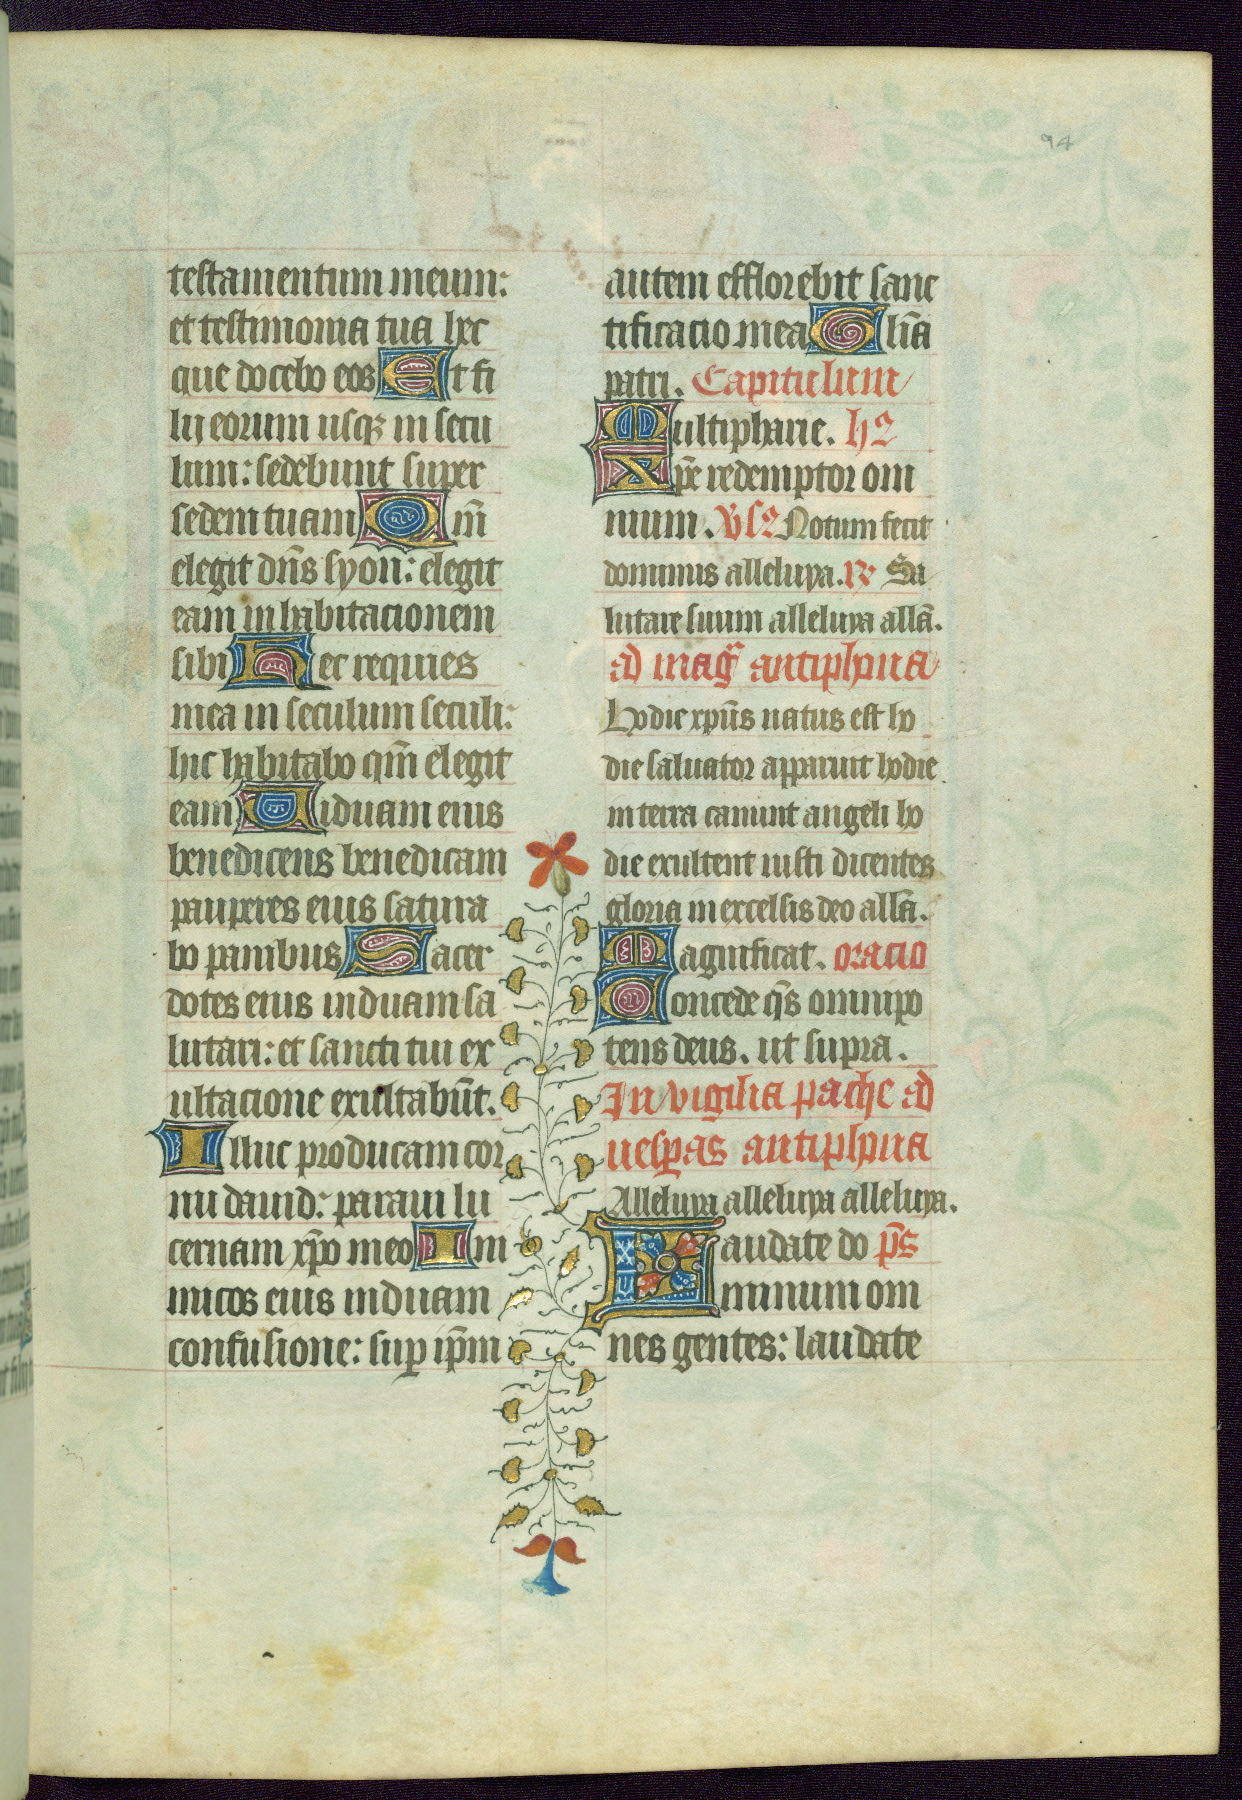 94
testamentum meum:
et testimonia tua hec
que docebo eos Et fi
lij eorum usqꝫ in secu
lum: sedebunt super
sedem tuam Qm̄
elegit dn̄s syon: elegit
eam in habitacionem
sibi Hec requies
mea in seculum seculi:
hic habitabo qm̄ elegit
eam Uiduam eius
benedicens benedicam
pauperes eius satura
bo panibus Sacer
dotes eius induam sa
lutari: et sancti tui ex
ultacione exultabūt.
Illuc producam cor
nu dauid: paraui lu
cernam xp̄o meo Ini
micos eius induam
confusione: suꝑ ip̄m
autem efflorebit sanc
tificacio mea Glīa
patri. Capitulum
Multiphane. hꝫ
Xp̄e redemptor om
nium. Vsꝫ Notum fecit
dominus alleluya. ℟ Sa
lutare suum alleluya allā.
ad mag̃ antiphona
Hodie xp̄us natus est ho
die saluator apparuit hodie
in terra canunt angeli ho
die exultent iusti dicentes
gloria in excelsis deo allā.
Magnificat. oracio
Concede q̄s omnipo
tens deus. ut supra.
In vigilia pache ad
uesꝑas antiphona
Alleluya alleluya alleluya.
Laudate do p̄s
minum om
nes gentes: laudate